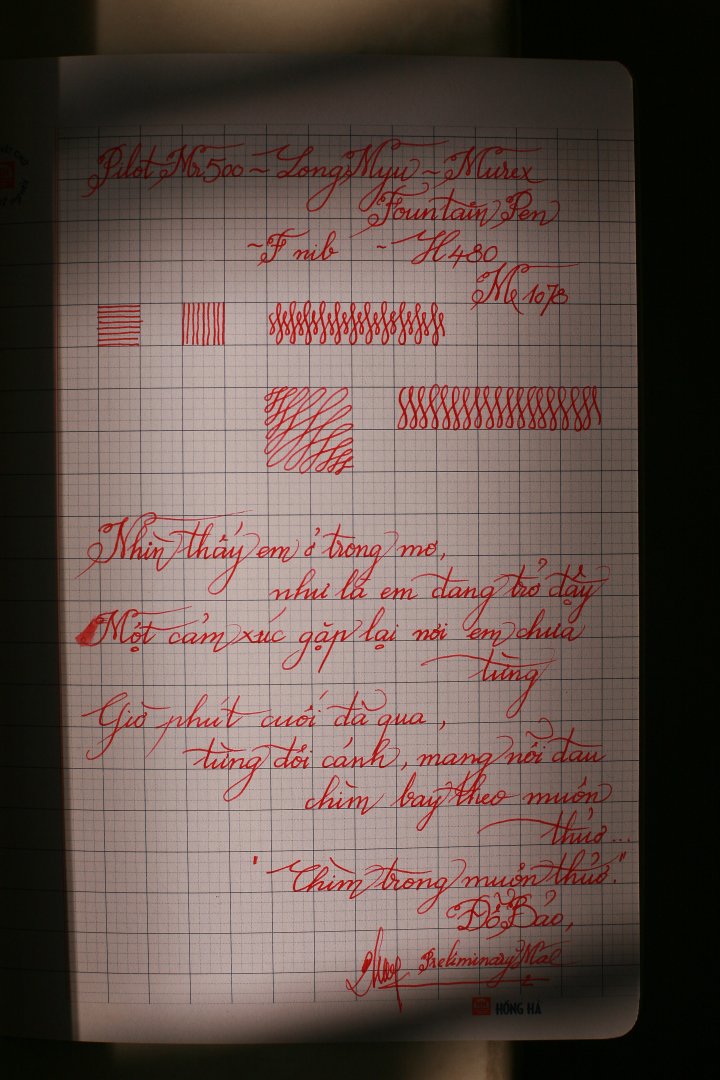 Pilot Mr500 ~ LongMyu ~ Murex
Fountain Pen
~ F nib ~ H480
Mr 1078
Nhìn thấy em ở trong mơ,
như là em đang trở dậy
Một cảm xúc gặp lại nơi em chưa
từng
Giờ phút cuối đã qua,
từng đôi cánh, mang nỗi đau
chìm bay theo muôn
thuở...
"Chìm trong muôn thuở."
Đỗ Bảo,
Preliminary Mae
HỒNG HÀ